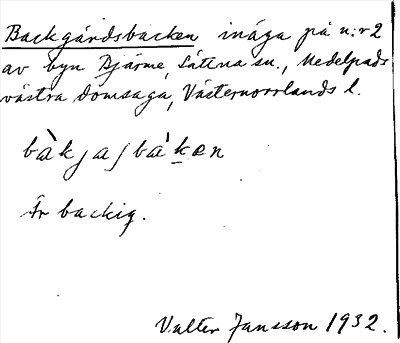 Backgårdsbacken inäga på n:r 2
av byn Djärme, Sättna sn., Medelpads
västra domsaga, Västernorrlands l.
Är backig.
Valter Jansson 1932.